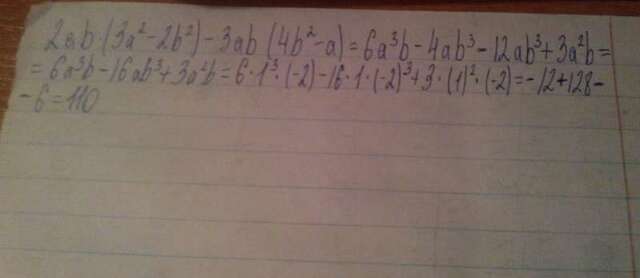 2ab·(3a²-2b²)-3ab(4b²-a)=6a³b-4ab³-12ab³+3a²b=
=6a³b-16ab³+3a²b=6·1³·(-2)-16·1·(-2)³+3·(1)²·(-2)=-12+128-
-6=110